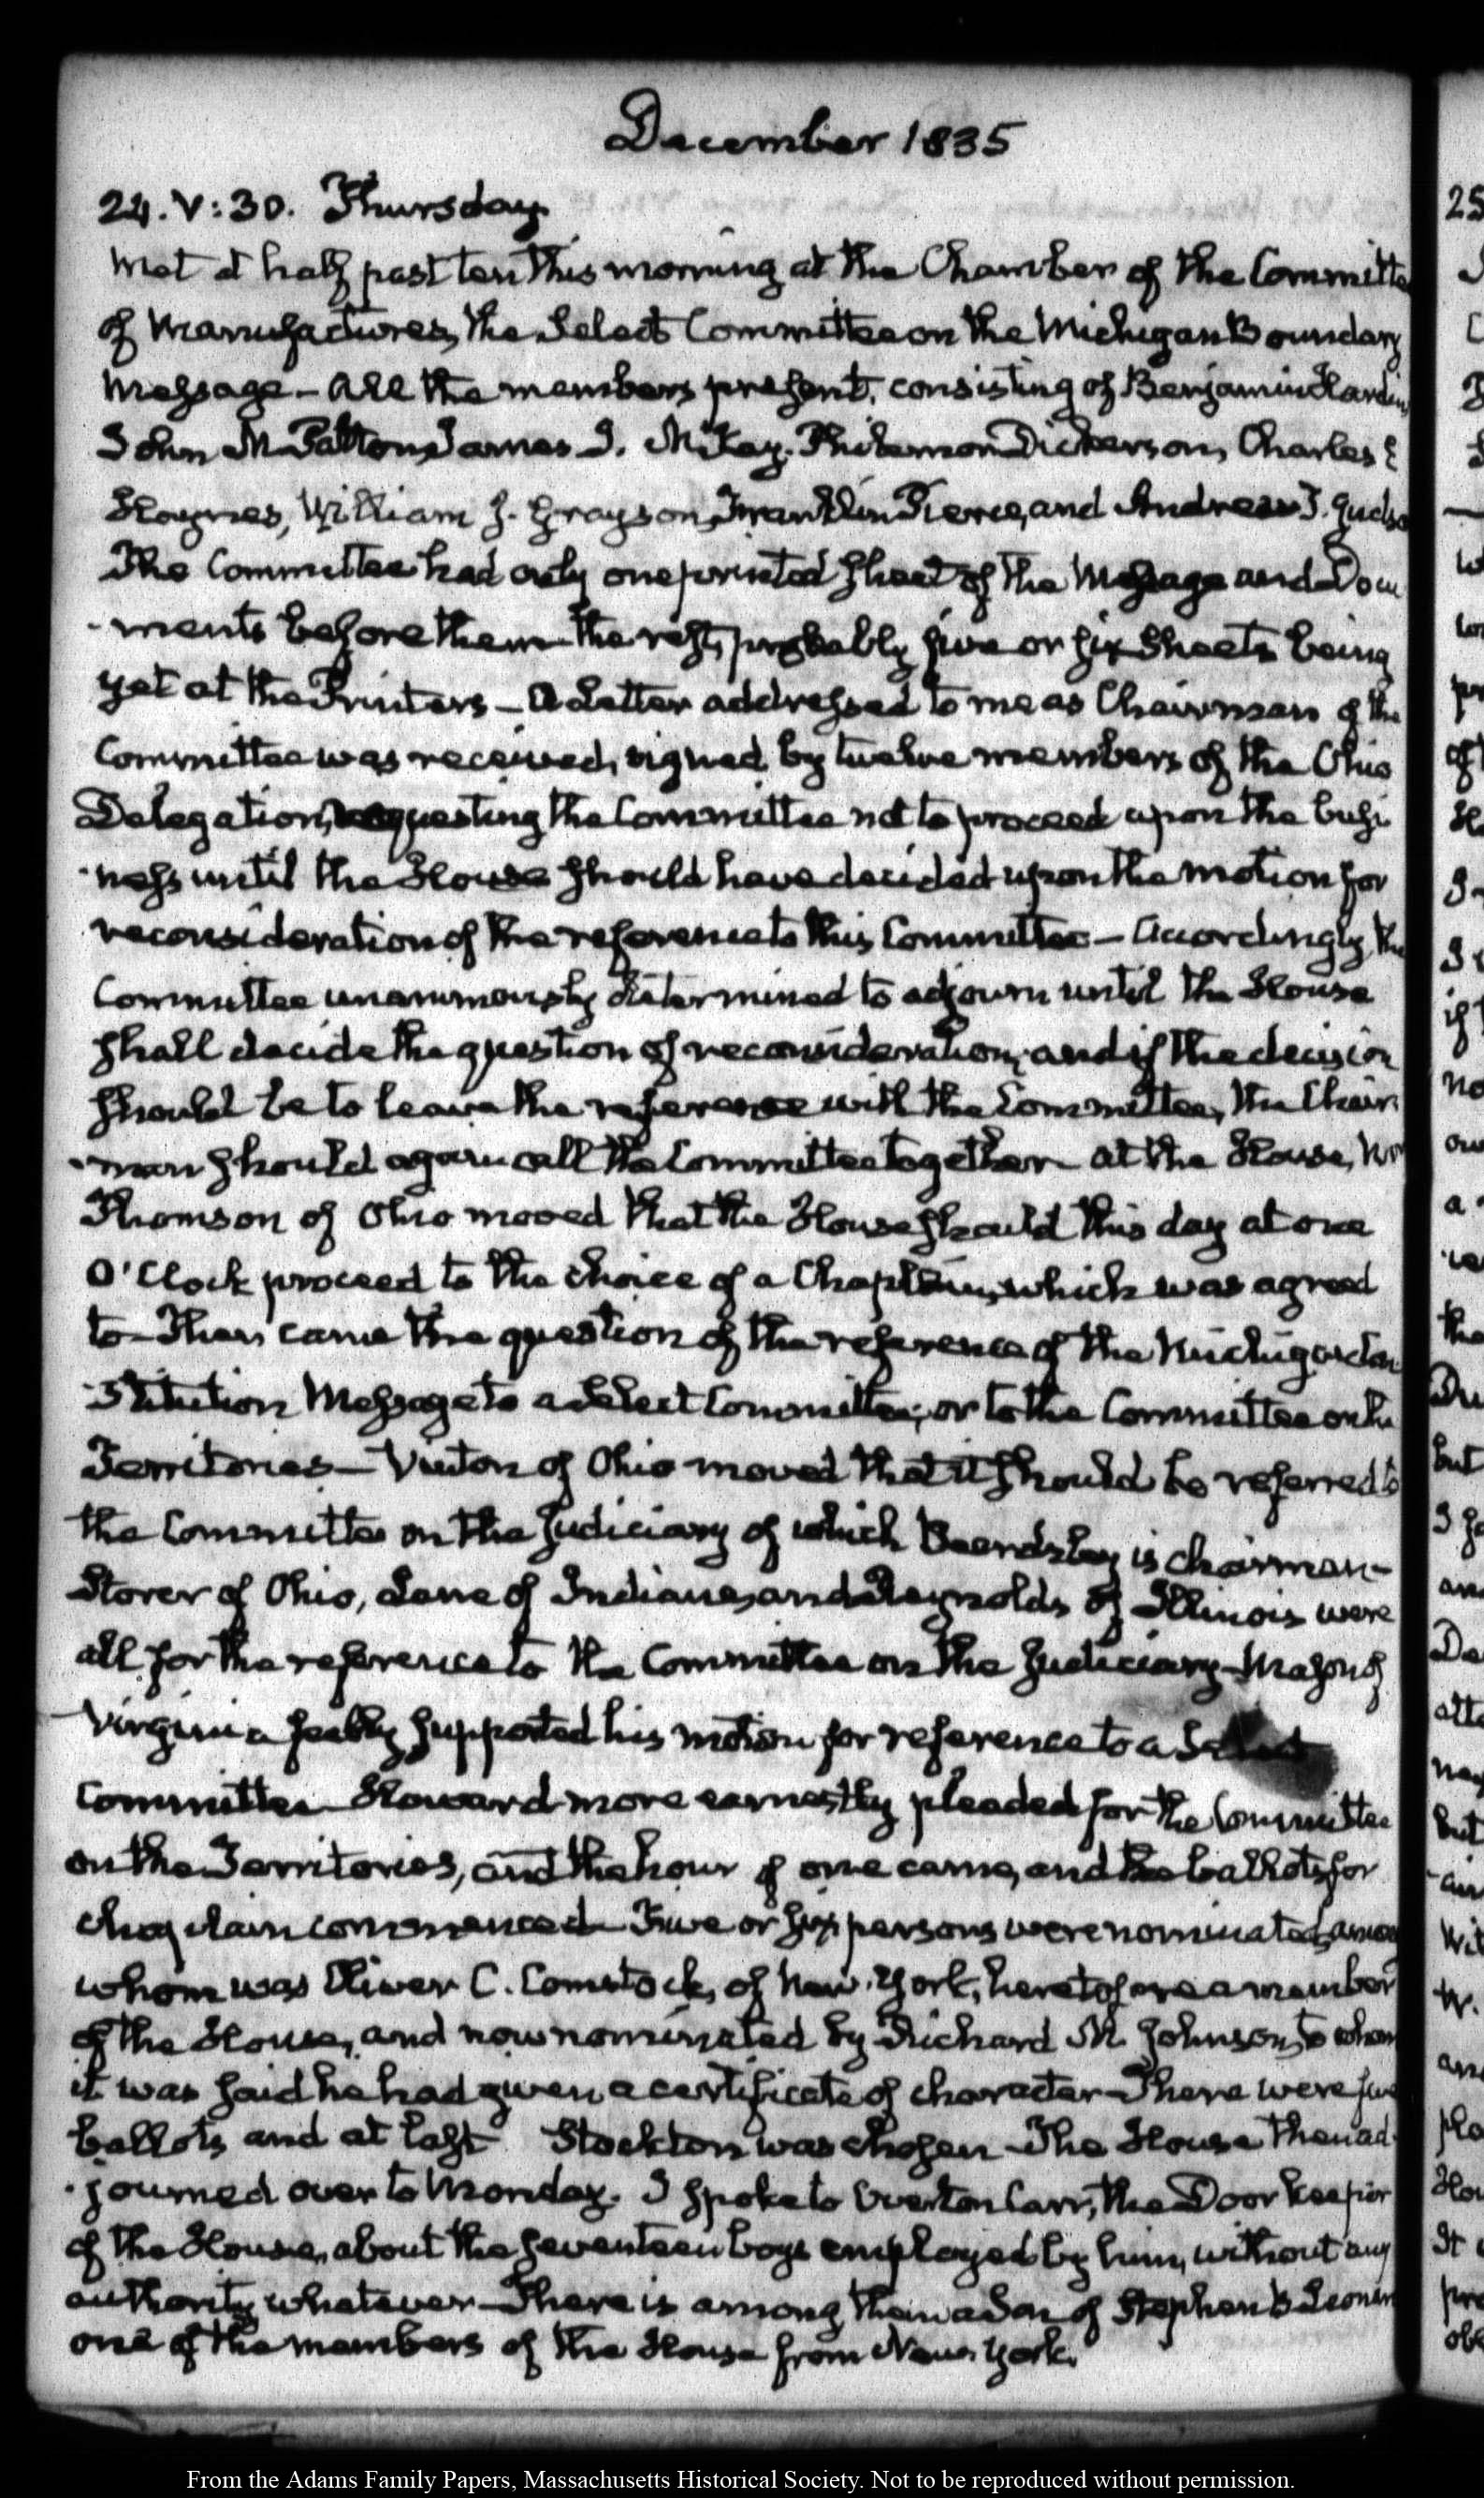 December 1835
24. V:30. Thursday.
Met at half past ten this morning at the Chamber of the Committee
of Manufactures, the Select Committee on the Michigan Boundary
Message — All the members present, consisting of Benjamin Hardin,
John M Patton, James I. McKay. Philemon Dickerson, Charles E
Haynes, William J. Grayson, Franklin Pierce, and Andrew T. Judson
The Committee had only one printed sheet of the Message and Docu
-ments before them the rest, probably five or six sheets being
yet at the Printers — A Letter addressed to me as Chairman of the
Committee was received, signed by twelve members of the Ohio
Delegation, requesting the Committee not to proceed upon the busi
-ness until the House should have decided upon the motion for
reconsideration of the reference to this Committee — Accordingly, the
Committee unanimously determined to adjourn until the House
shall decide the question of reconsideration; and if the decision
should be to leave the reference with the Committee, the Chair
-man should again call the Committee together — At the House,
Thomson of Ohio moved that the House should this day at one
O'Clock proceed to the choice of a Chaplain, which was agreed
to — Then came the question of the reference of the Michigan Con
-stitution Message to a select Committee, or to the Committee on the
Territories — Vinton of Ohio moved that it should be referred to
the Committee on the Judiciary of which Beardsley is chairman —
Storer of Ohio, Lane of Indiana, and Reynolds of Illinois were
all for the reference to the Committee on the Judiciary — Mason of
Virginia feebly supported his motion for reference to a Select
Committee — Howard more earnestly pleaded for the Committee
on the Territories, and the hour of one came, and the ballots for
chaplain commenced — Five or six persons were nominated, among
whom was Oliver C. Comstock, of New-York, heretofore a member
of the House, and now nominated by Richard M. Johnson, to whom
it was said he had given a certificate of character — There were five
ballots and at last Stockton was chosen — The House then ad
-journed over to Monday. I spoke to Overton Carr, the Door keeper
of the House, about the seventeen boys employed by him, without any
authority whatever — There is among them a Son of Stephen B Leonard
one of the members of the House from New York.
25
From the Adams Family Papers, Massachusetts Historical Society. Not to be reproduced without permission.